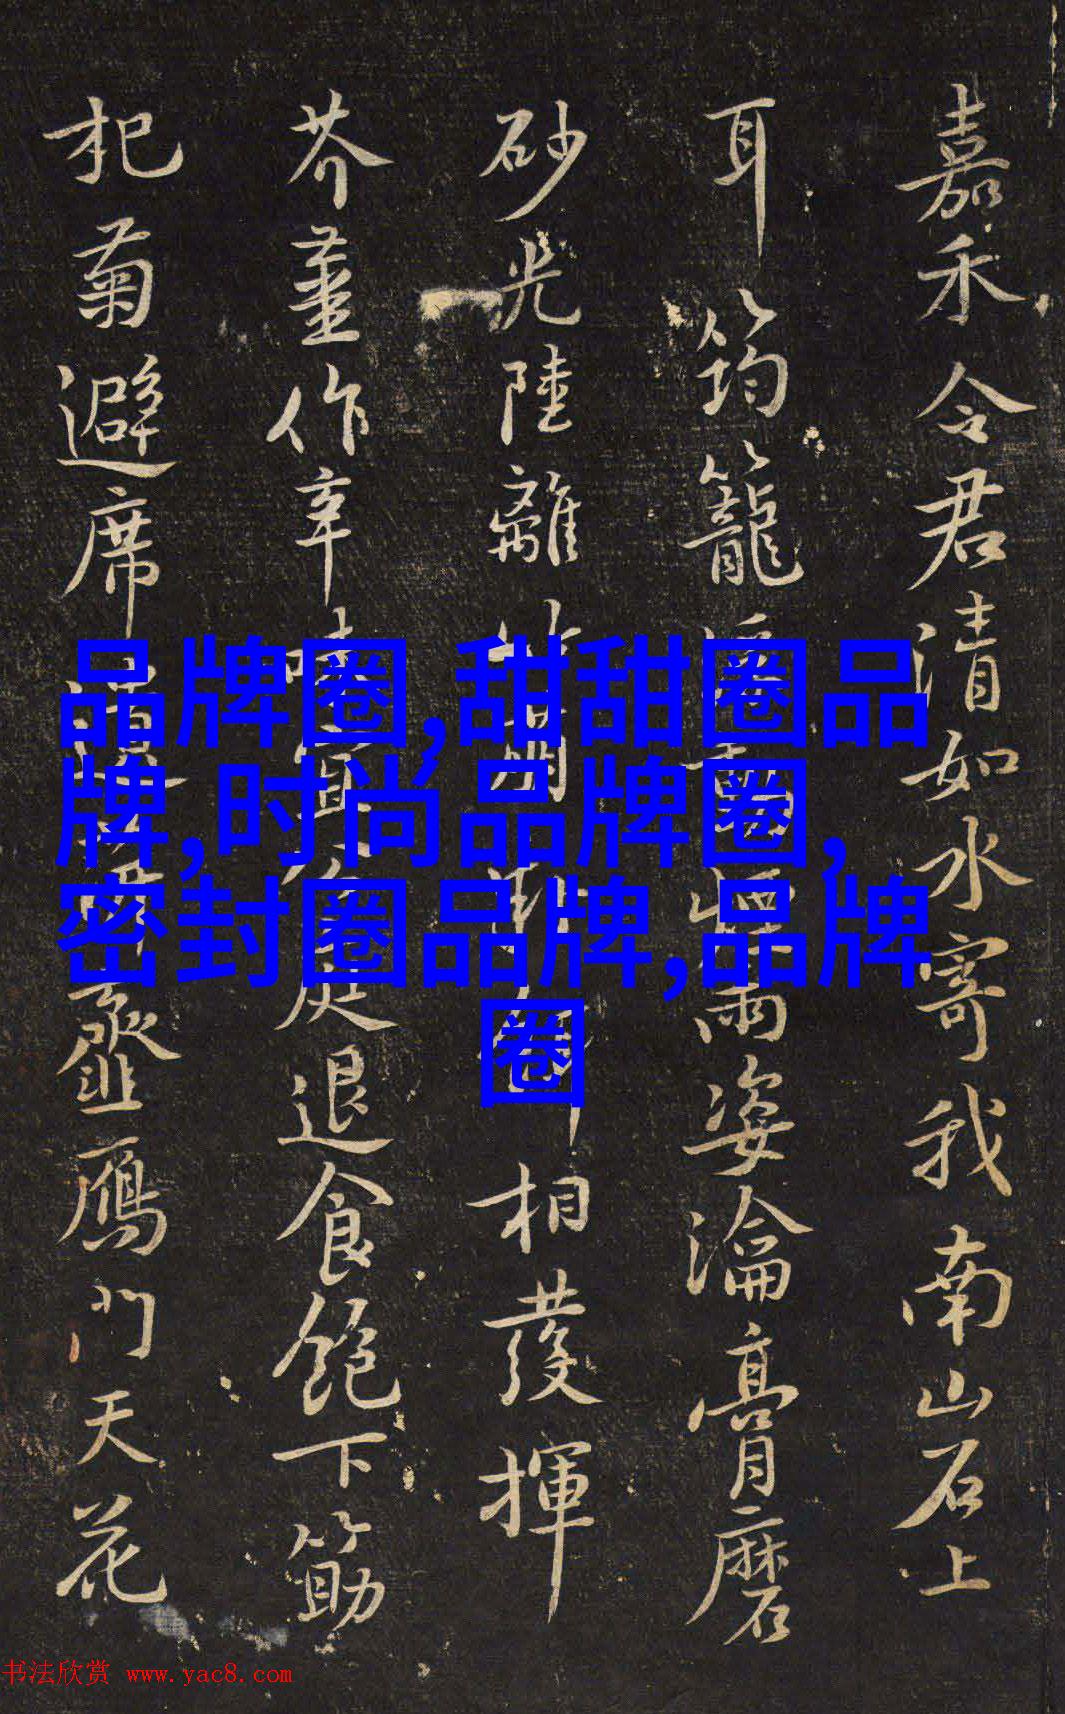 嘉禾令君清如水寄我南山石上
耳筠籠雨姿瀹膏磨
砂光陸離相發揮
芥薑作辛退食飽下筯
杞菊避席鴈門天花
品牌圈,甜甜圈品
牌,时尚品牌圈,
密封圈品牌,品牌
圈
书法欣赏 www.yac8.com